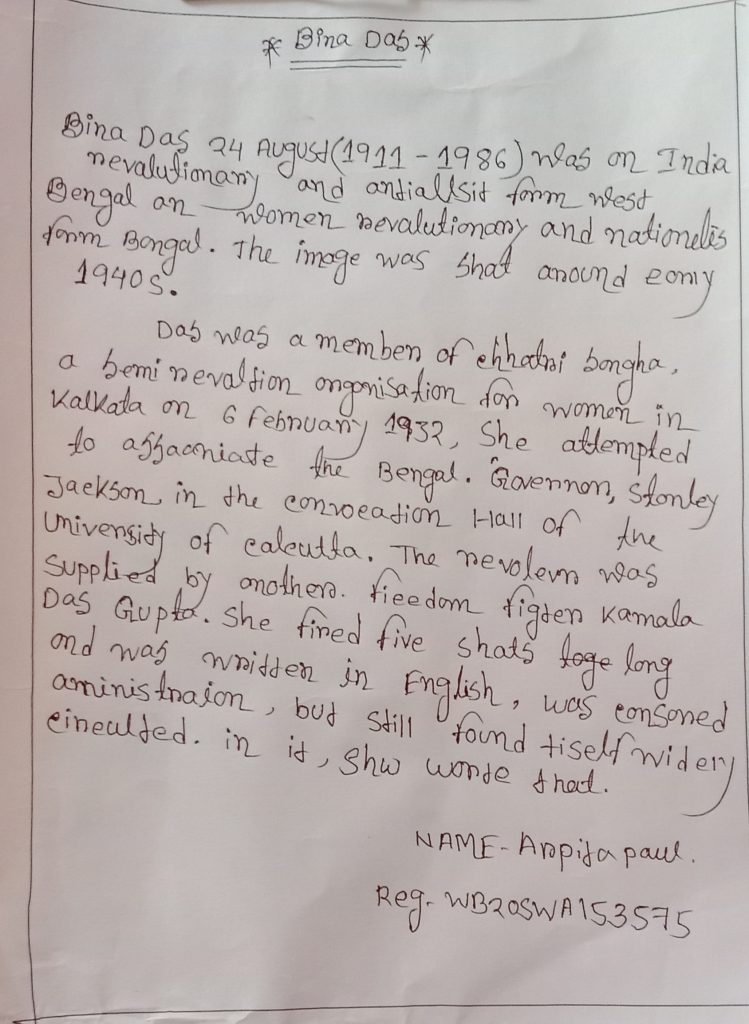 * Bina Das *
Bina Das 24 August (1911 - 1986) was on India
revalutionary and antiallsit form west
Bengal an women revalutionary and nationelis
form Bongal. The image was shat around eory
1940s.
Das was a member of chhatri songha,
a semi revaltion organisation for women in
Kalkata on 6 February 1932, She attempted
to assaoniaste the Bengal. Governor, Stonley
Jaekson, in the convocation Hall of the
University of calcutta. The revolevr was
supplied by onother. fieedom figter Kamala
Das Gupta. She fired five shats toge long
ond was written in English, was consored
aministraion, but still found tiself widery
circulted. in it, Shw worte that.
NAME - Arpita paul.
Reg- WB20SWA153575